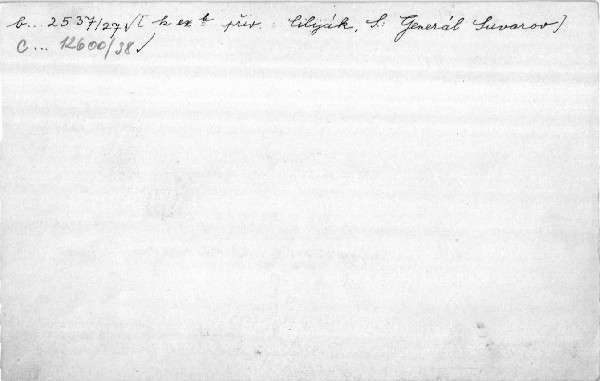 b... 2537/27 √ [k ex. b přiv.: Cibiják, S.: Generál Suvarov]
C... 12600/38 √